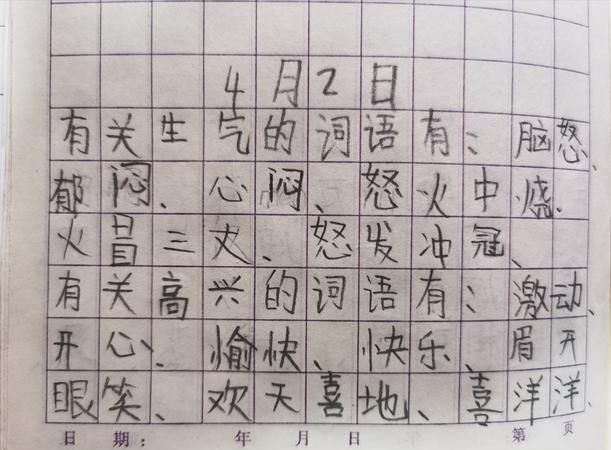 4月2日
有关生气的词语有：脑怒、
郁闷、心闷、怒火中烧、
火冒三丈、怒发冲冠、
有关高兴的词语有：激动、
开心、愉快、快乐、眉开
眼笑、欢天喜地、喜洋洋、
日期： 年 月 日 第 页